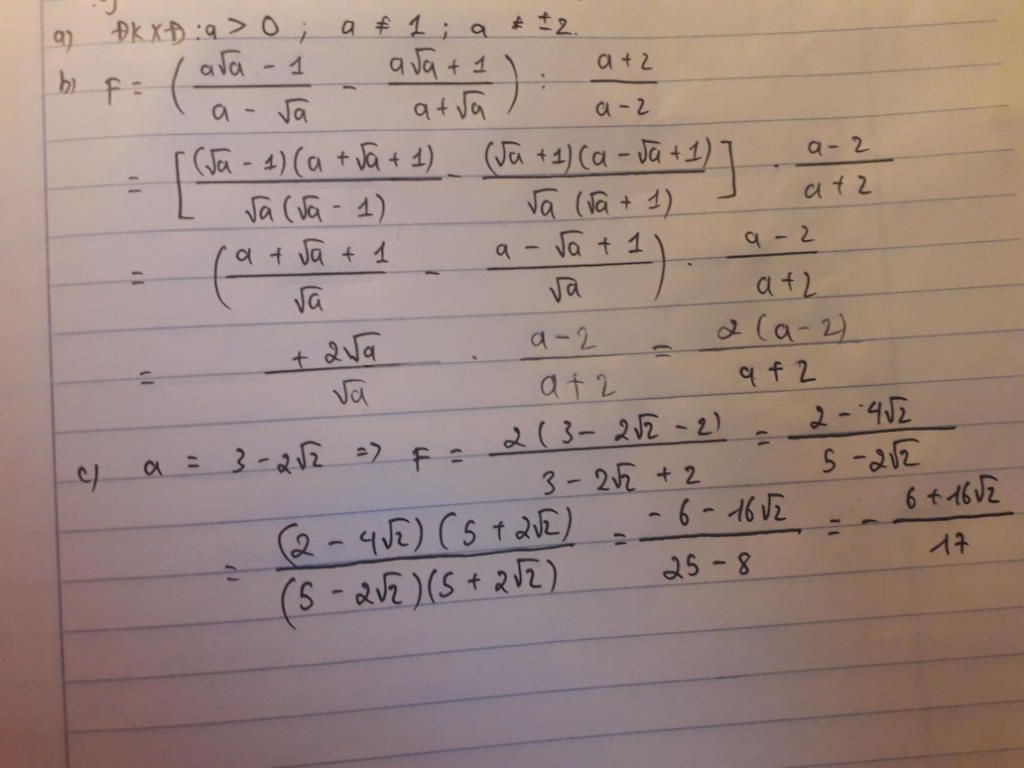 a) ĐKXĐ : a > 0 ; a ≠ 1 ; a ≠ ±2.
b) F = ( (a√a - 1)/(a - √a) - (a√a + 1)/(a + √a) ) : (a + 2)/(a - 2)
= [ (√a - 1)(a + √a + 1)/(√a (√a - 1)) - (√a + 1)(a - √a + 1)/(√a (√a + 1)) ] . (a - 2)/(a + 2)
= ( (a + √a + 1)/√a - (a - √a + 1)/√a ) . (a - 2)/(a + 2)
= (+ 2√a)/√a . (a - 2)/(a + 2) = 2 (a - 2)/(a + 2)
c) a = 3 - 2√2 => F = 2 (3 - 2√2 - 2)/(3 - 2√2 + 2) = (2 - 4√2)/(5 - 2√2)
= (2 - 4√2) (5 + 2√2)/((5 - 2√2)(5 + 2√2)) = (- 6 - 16√2)/(25 - 8) = - (6 + 16√2)/17